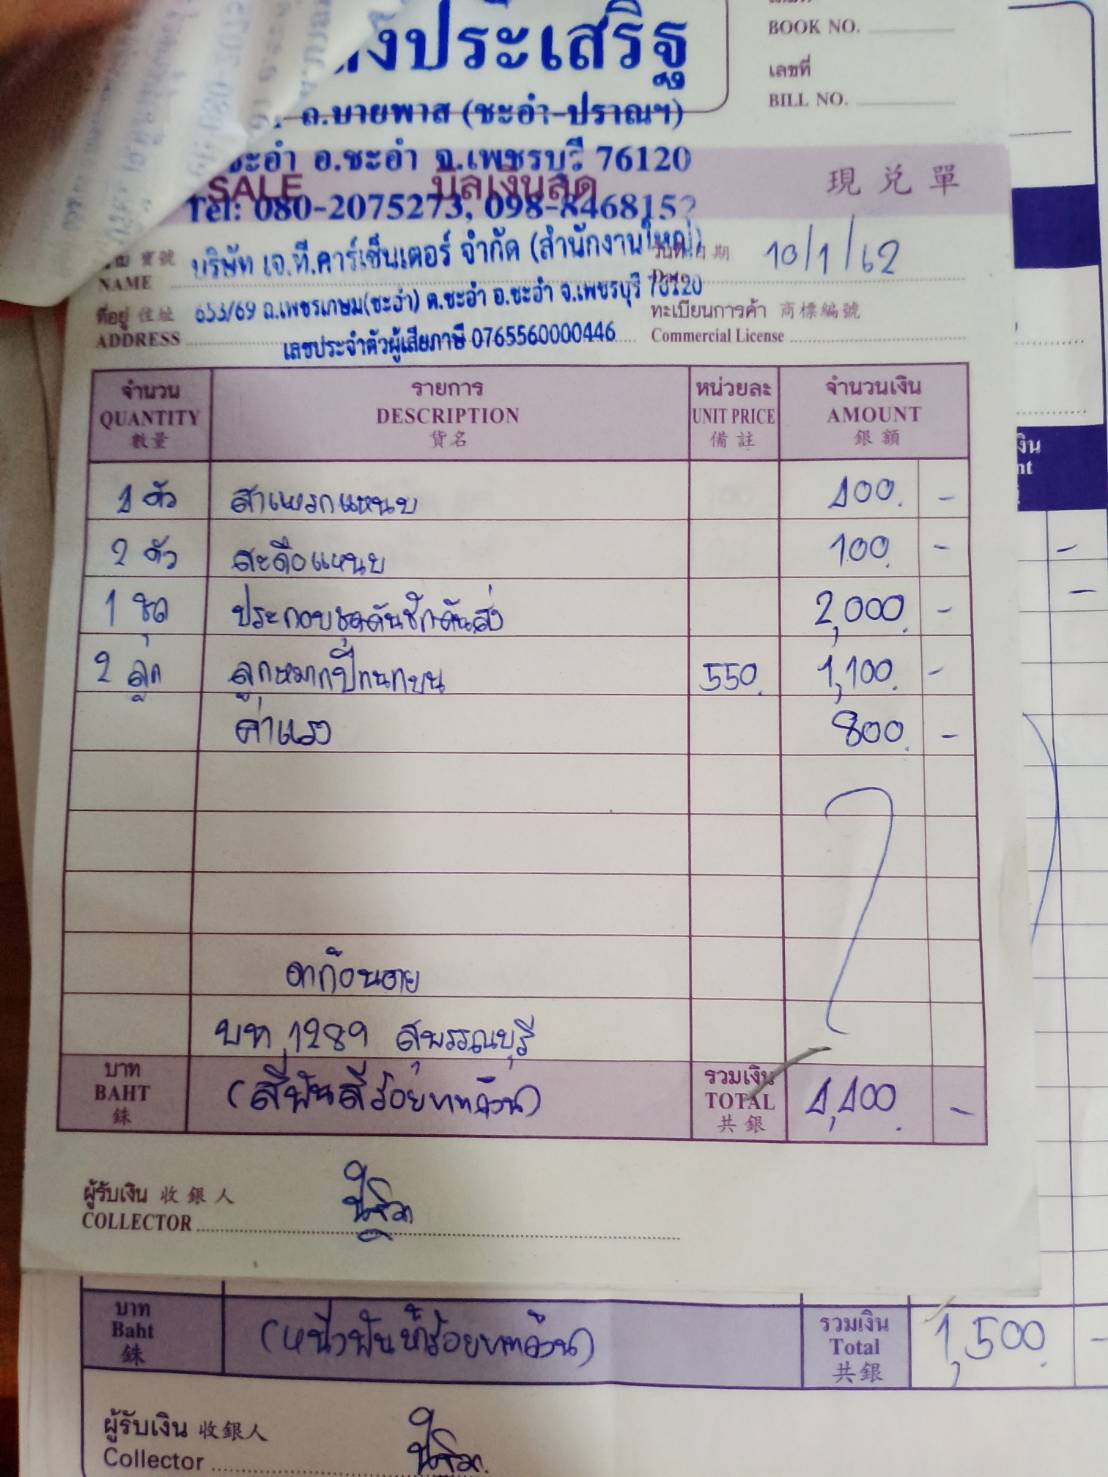 งประเสริฐ
BOOK NO.
เลขที่
BILL NO.
ถ.บายพาส (ชะอำ-ปราณฯ)
ชะอำ อ.ชะอำ จ.เพชรบุรี 76120
SALE บิลเงินสด 現兌單
Tel: 080-2075273, 098-846815
บริษัท เจ.ที.คาร์เซ็นเตอร์ จำกัด (สำนักงานใหญ่)
NAME
วันที่ 日期 10/1/62
ที่อยู่ 住址 653/69 ถ.เพชรเกษม(ชะอำ) ต.ชะอำ อ.ชะอำ จ.เพชรบุรี 76120
ADDRESS เลขประจำตัวผู้เสียภาษี 0765560000446
ทะเบียนการค้า 商標編號
Commercial License
จำนวน รายการ หน่วยละ จำนวนเงิน
QUANTITY DESCRIPTION UNIT PRICE AMOUNT
數量 貨名 備註 銀額
1 ตัว สาแหรกแหนบ 400.-
2 ตัว สะดือแหนบ 100.-
1 ชุด ประกอบชุดคันชักคันส่ง 2,000.-
2 ลูก ลูกหมากปีกนกบน 550. 1,100.-
ค่าแรง 800.-
บท 1289 สุพรรณบุรี
บาท รวมเงิน
BAHT (สี่พันสี่ร้อยบาทถ้วน) TOTAL 4,400.-
銖 共銀
ผู้รับเงิน 收銀人
COLLECTOR
บาท รวมเงิน
Baht (หนึ่งพันห้าร้อยบาทถ้วน) Total 1,500.-
銖 共銀
ผู้รับเงิน 收銀人
Collector